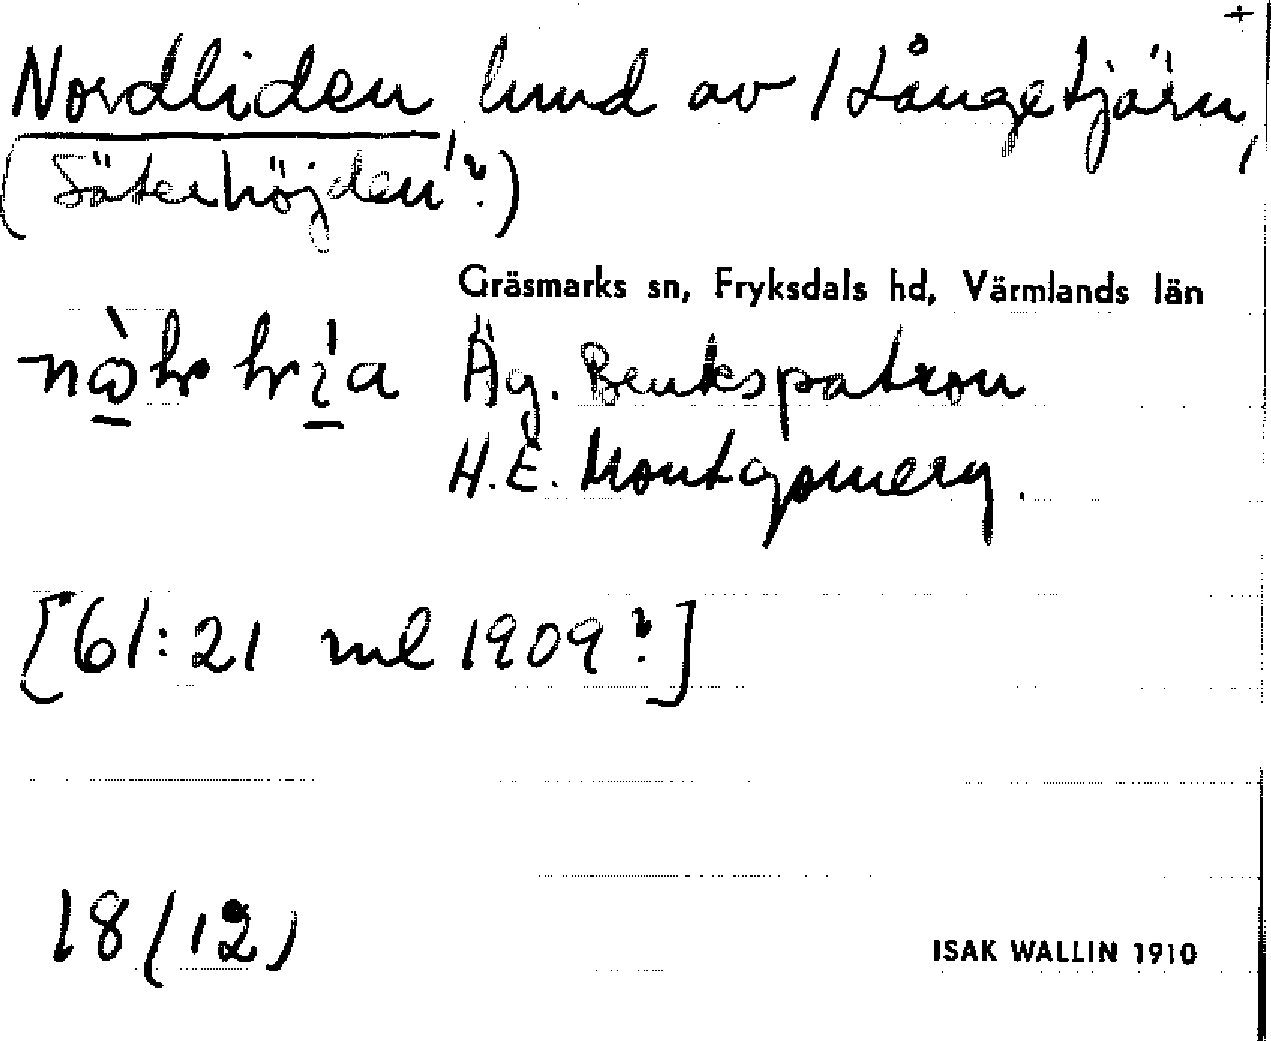 +
Nordliden, lund av 1 Långetjärn,
(Säterhöjden?)
Gräsmarks sn, Fryksdals hd, Värmlands län
Äg. Brukspatron
H.E. Montgomery.
[61:21 ml 1909?]
18 (12)
ISAK WALLIN 1910